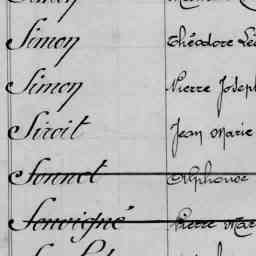 Simon Théodore
Simon Pierre Joseph
Siroit Jean Marie
Sonnet Alphonse
Souvigné Pierre Mar